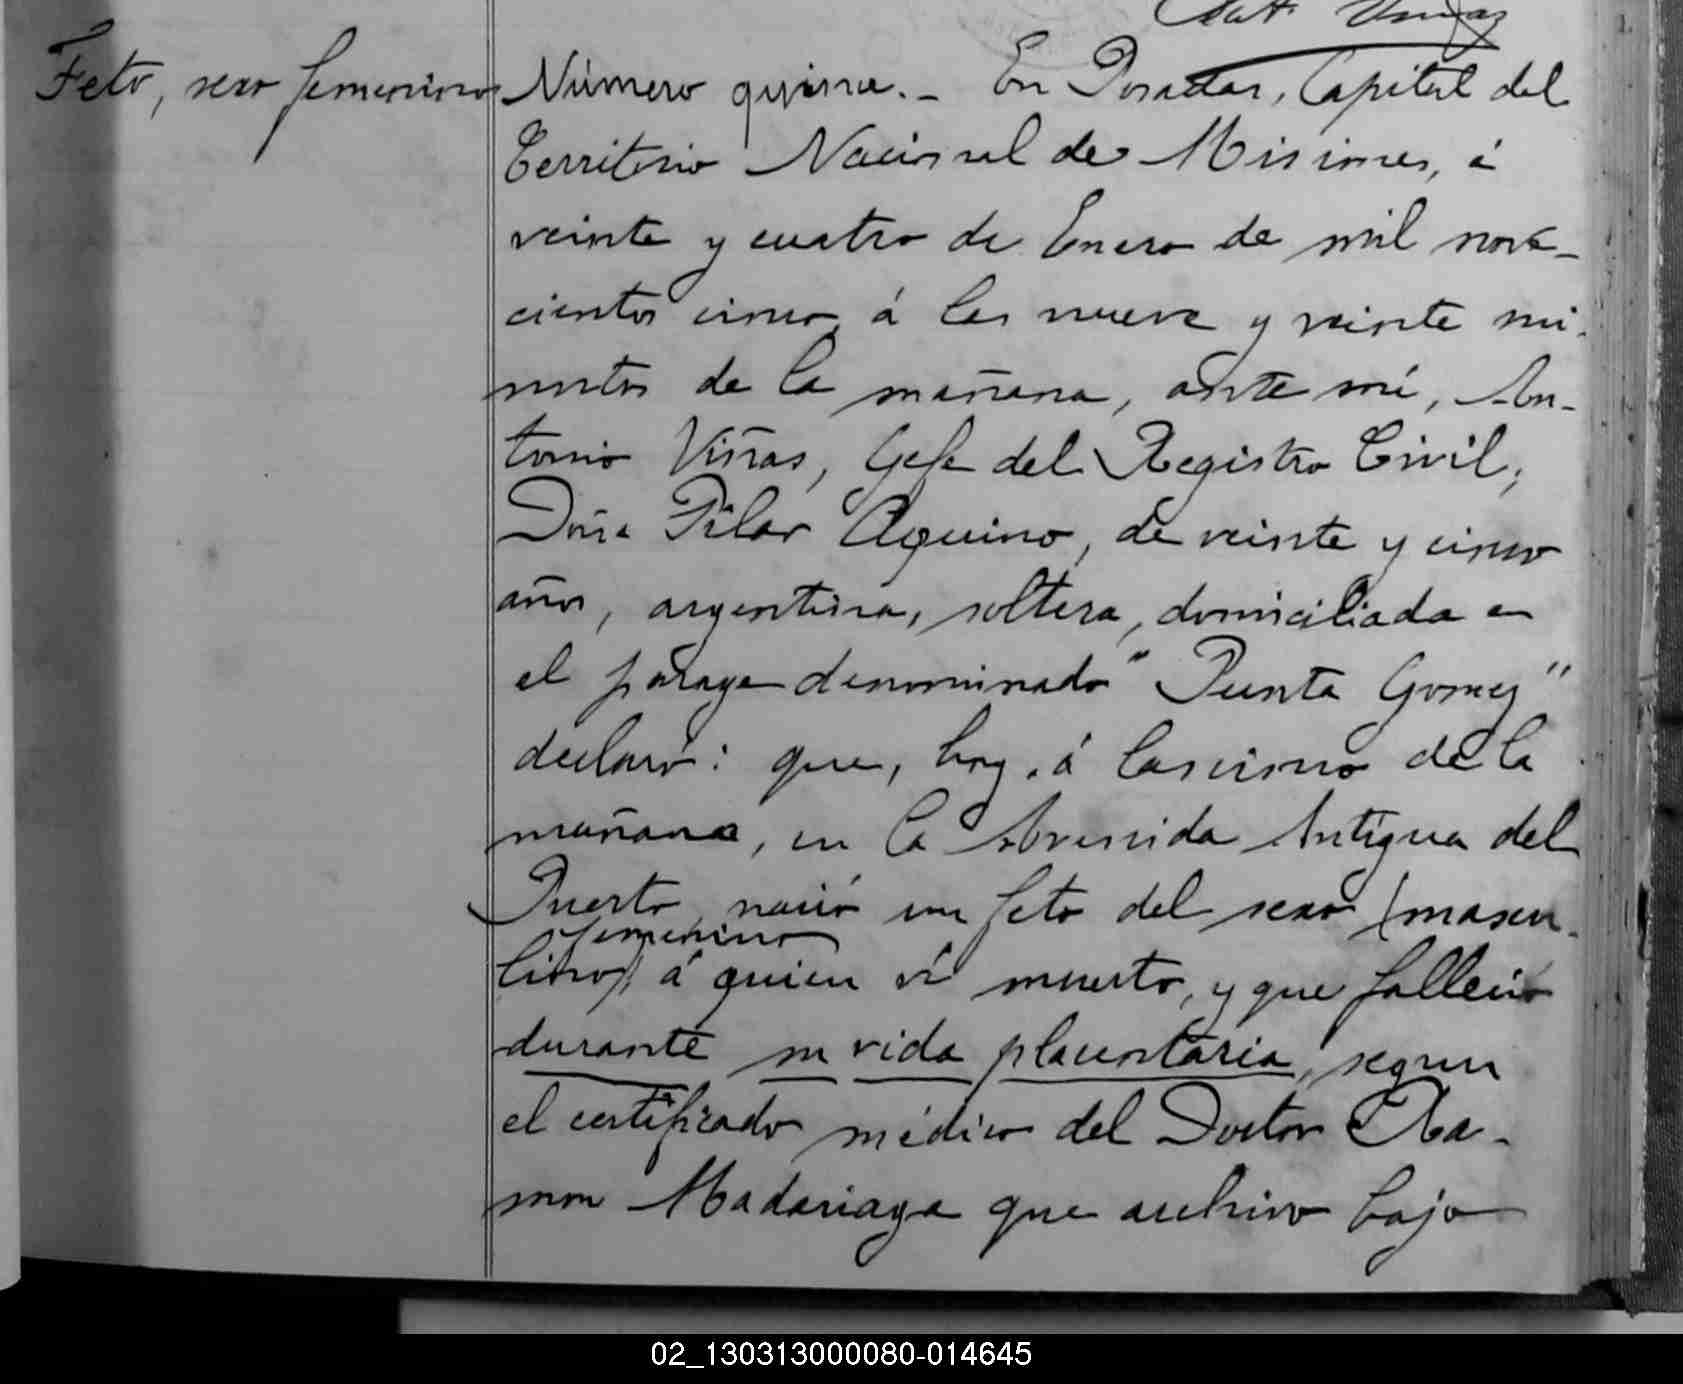 Ant. Viñas
Feto, sexo femenino
Número quince. - En Posadas, Capital del
Territorio Nacional de Misiones, á
veinte y cuatro de Enero de mil nove-
cientos cinco, á las nueve y veinte mi-
nutos de la mañana, ante mí, An-
tonio Viñas, Gefe del Registro Civil,
Doña Pilar Aquino, de veinte y cinco
años, argentina, soltera, domiciliada en
el parage denominado "Punta Gomez"
declaró: que, hoy, á las cinco de la
mañana, en la Avenida Antigua del
Puerto, nació un feto del sexo (mascu-
femenino
lino), á quien ví muerto, y que falleció
durante su vida placentaria, segun
el certificado médico del Doctor Ra-
mon Madariaga que archivo bajo
02_130313000080-014645